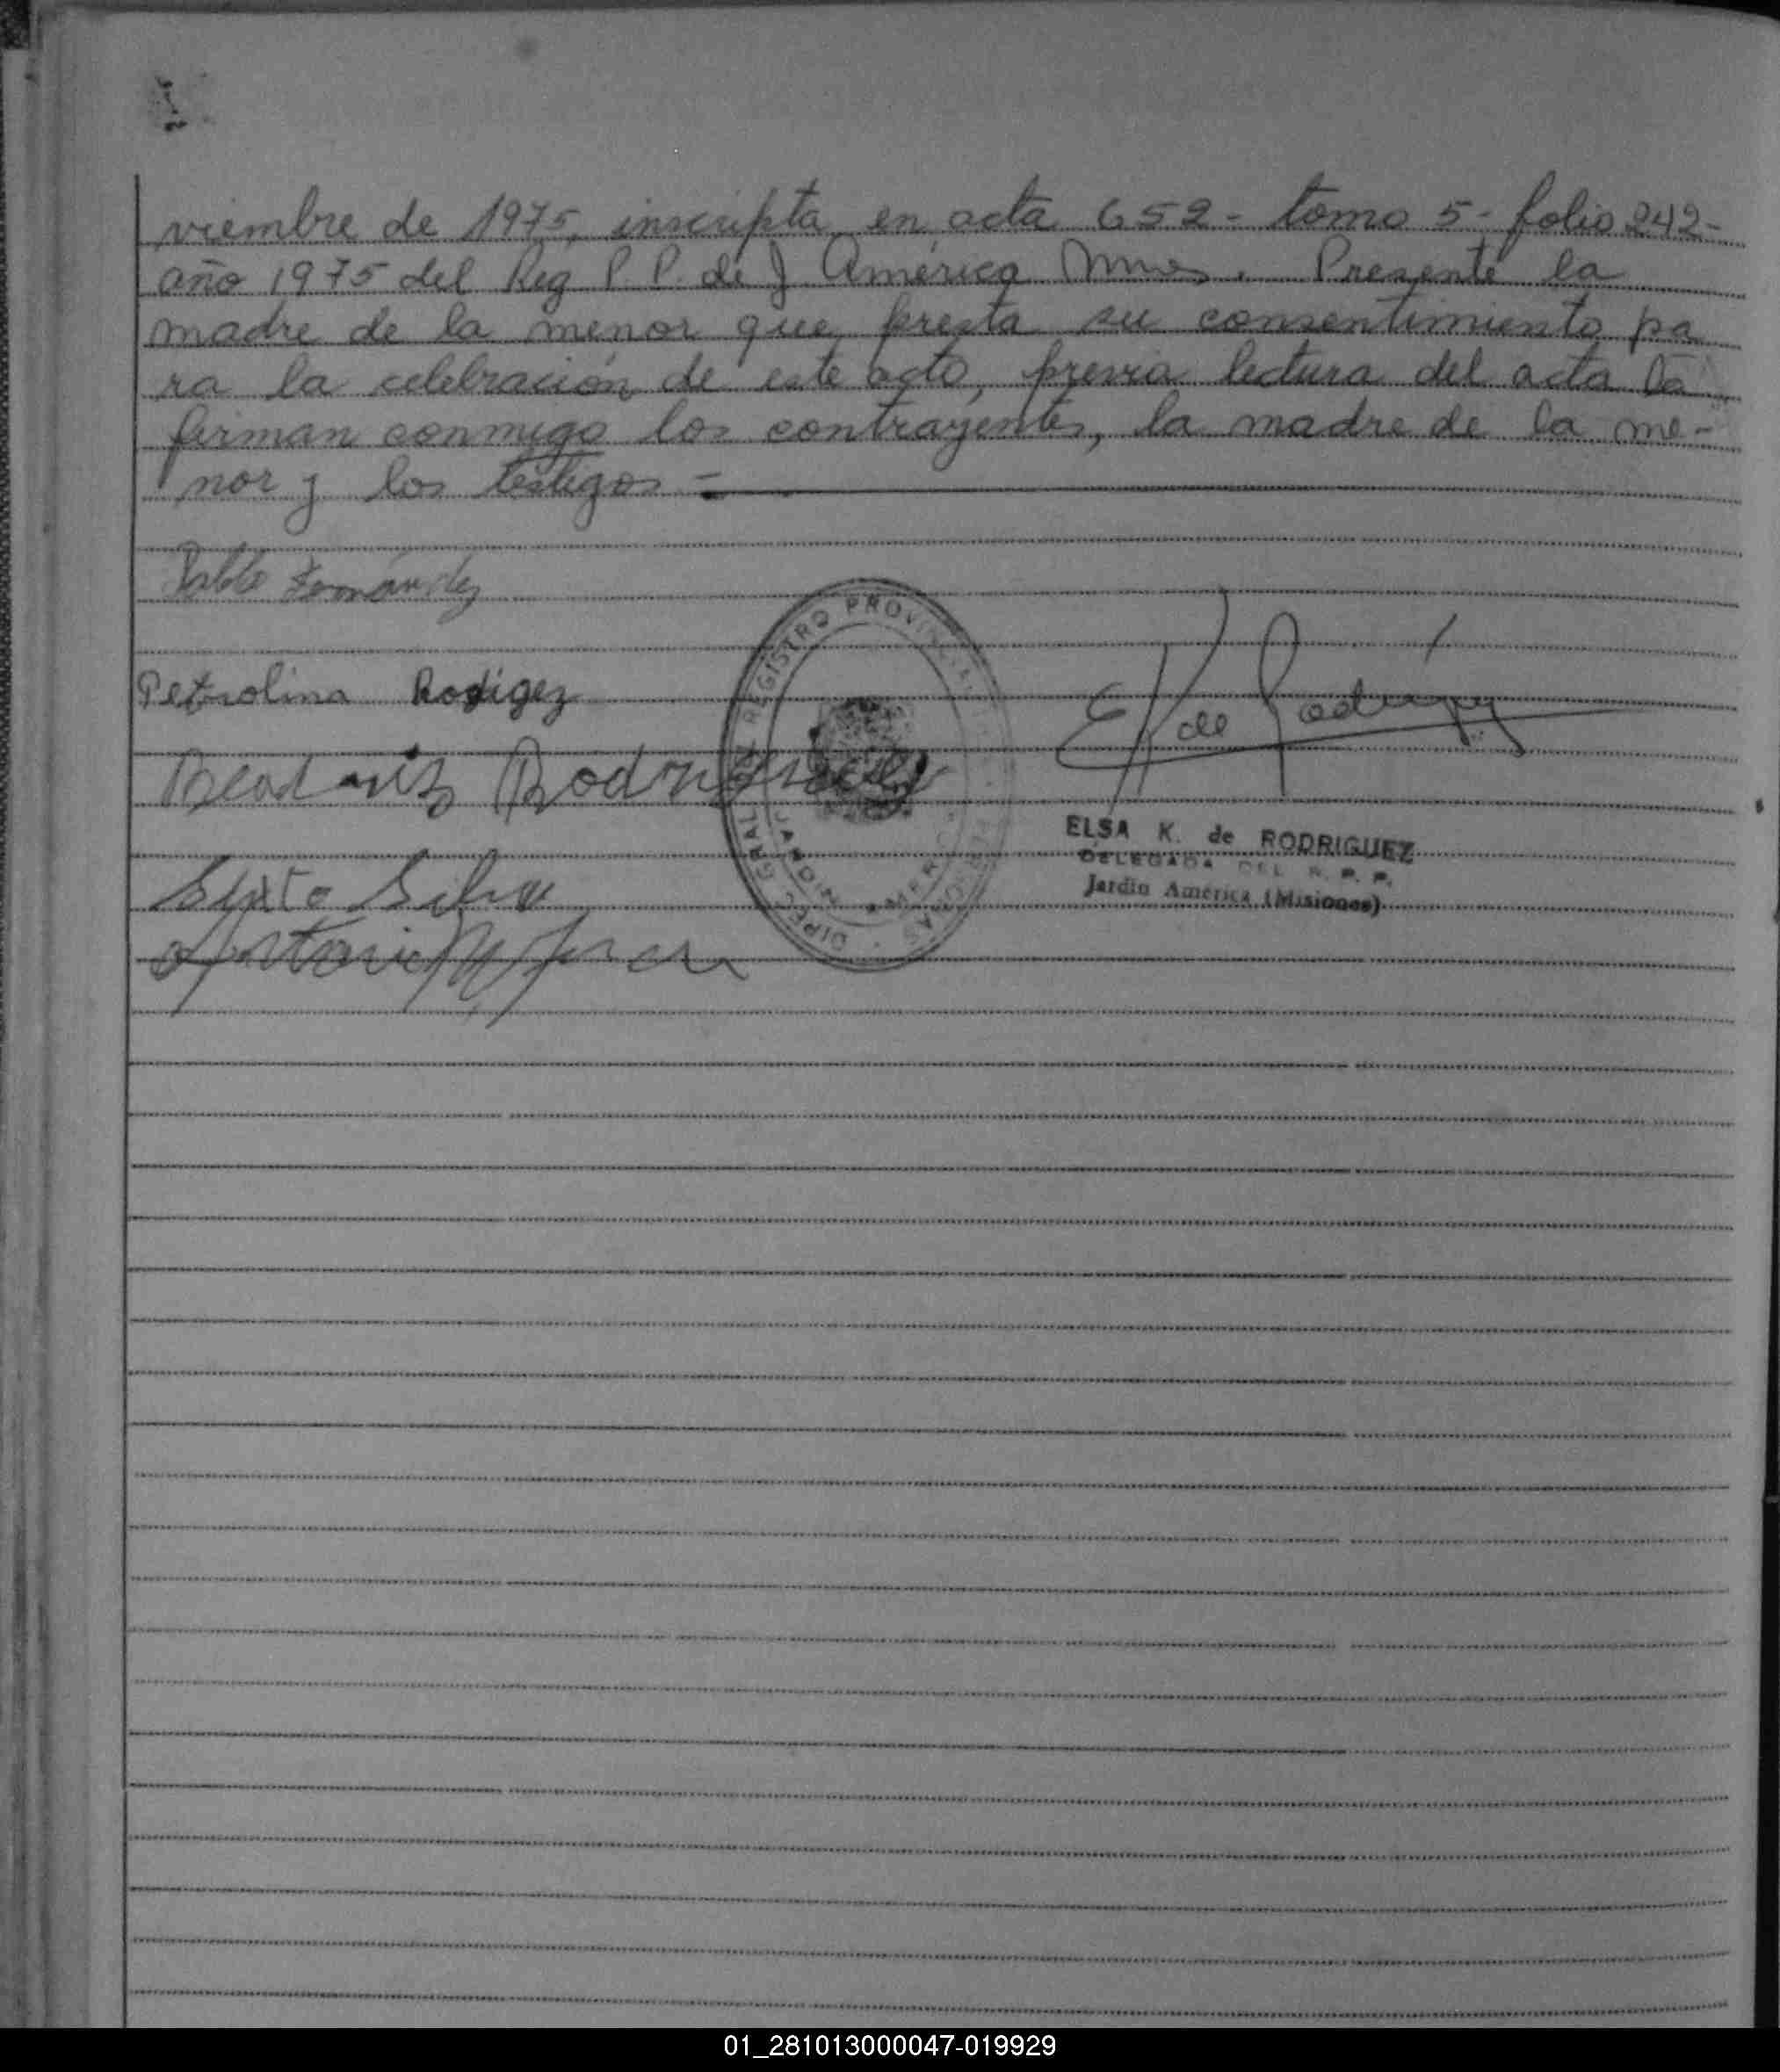 viembre de 1975, inscripta en acta 652- tomo 5- folio 242-
año 1975 del Reg P. P. de J América Mnes. Presente la
madre de la menor que presta su consentimiento pa
ra la celebración de este acto, previa lectura del acta la
firman conmigo los contrayentes, la madre de la me-
nor y los testigos -
Pablo Fernández
Petrolina Rodigez
Beatriz Rodriguez
Sixto Silva
Antonio
EK de Rodriguez
DIREC. GRAL. REGISTRO PROVINCIAL
JARDIN AMERICA
ELSA K. de RODRIGUEZ
DELEGADA DEL R. P. P.
Jardín América (Misiones)
01_281013000047-019929